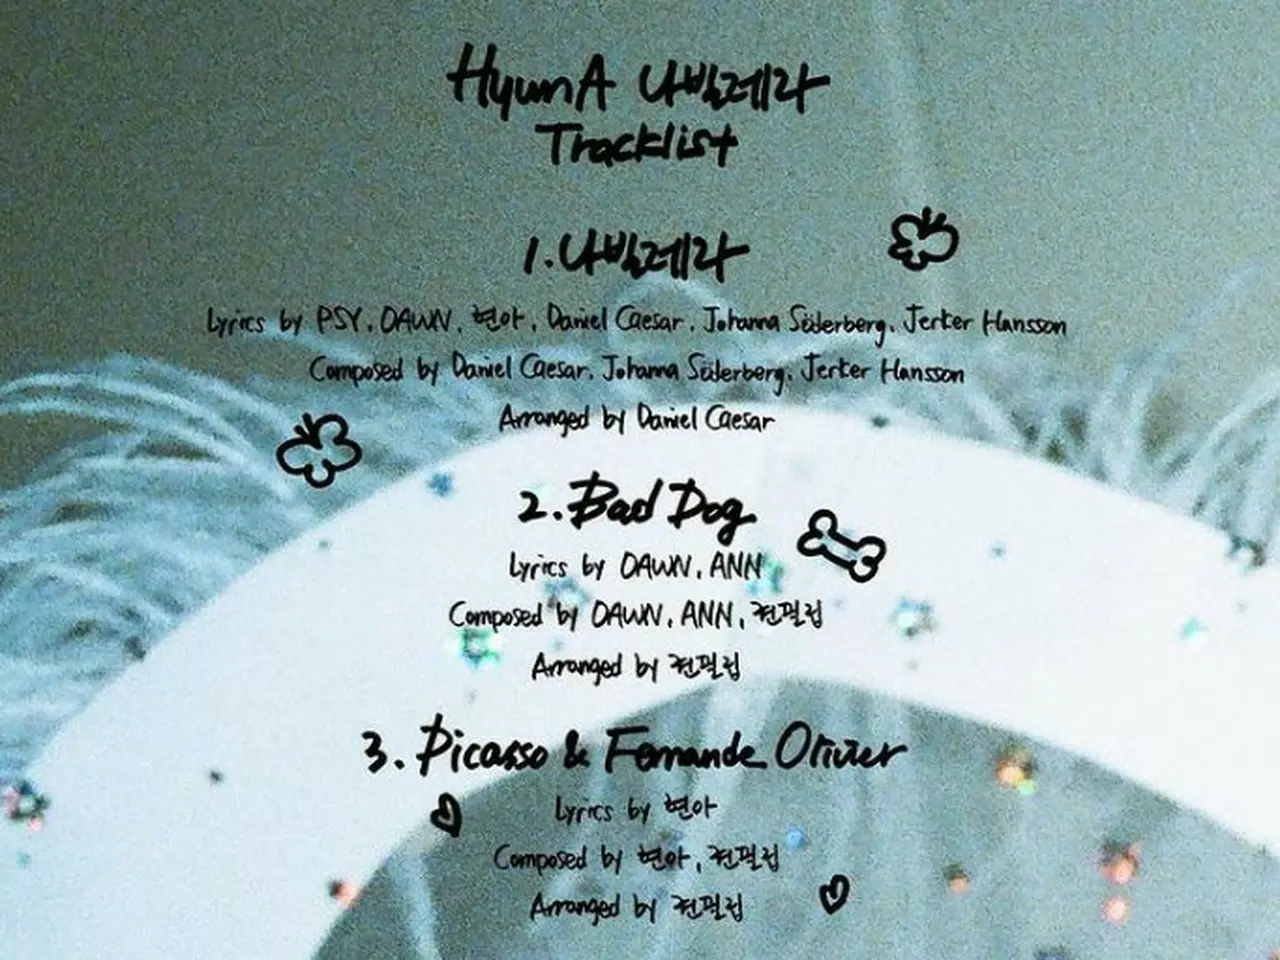 HyunA 나빌레라
Tracklist
1. 나빌레라
Lyrics by PSY, DAWN, 현아, Daniel Caesar, Johanna Söderberg, Jerker Hansson
Composed by Daniel Caesar, Johanna Söderberg, Jerker Hansson
Arranged by Daniel Caesar
2. Bad Dog
Lyrics by DAWN, ANN
Composed by DAWN, ANN, 전필립
Arranged by 전필립
3. Picasso & Fernande Olivier
Lyrics by 현아
Composed by 현아, 전필립
Arranged by 전필립